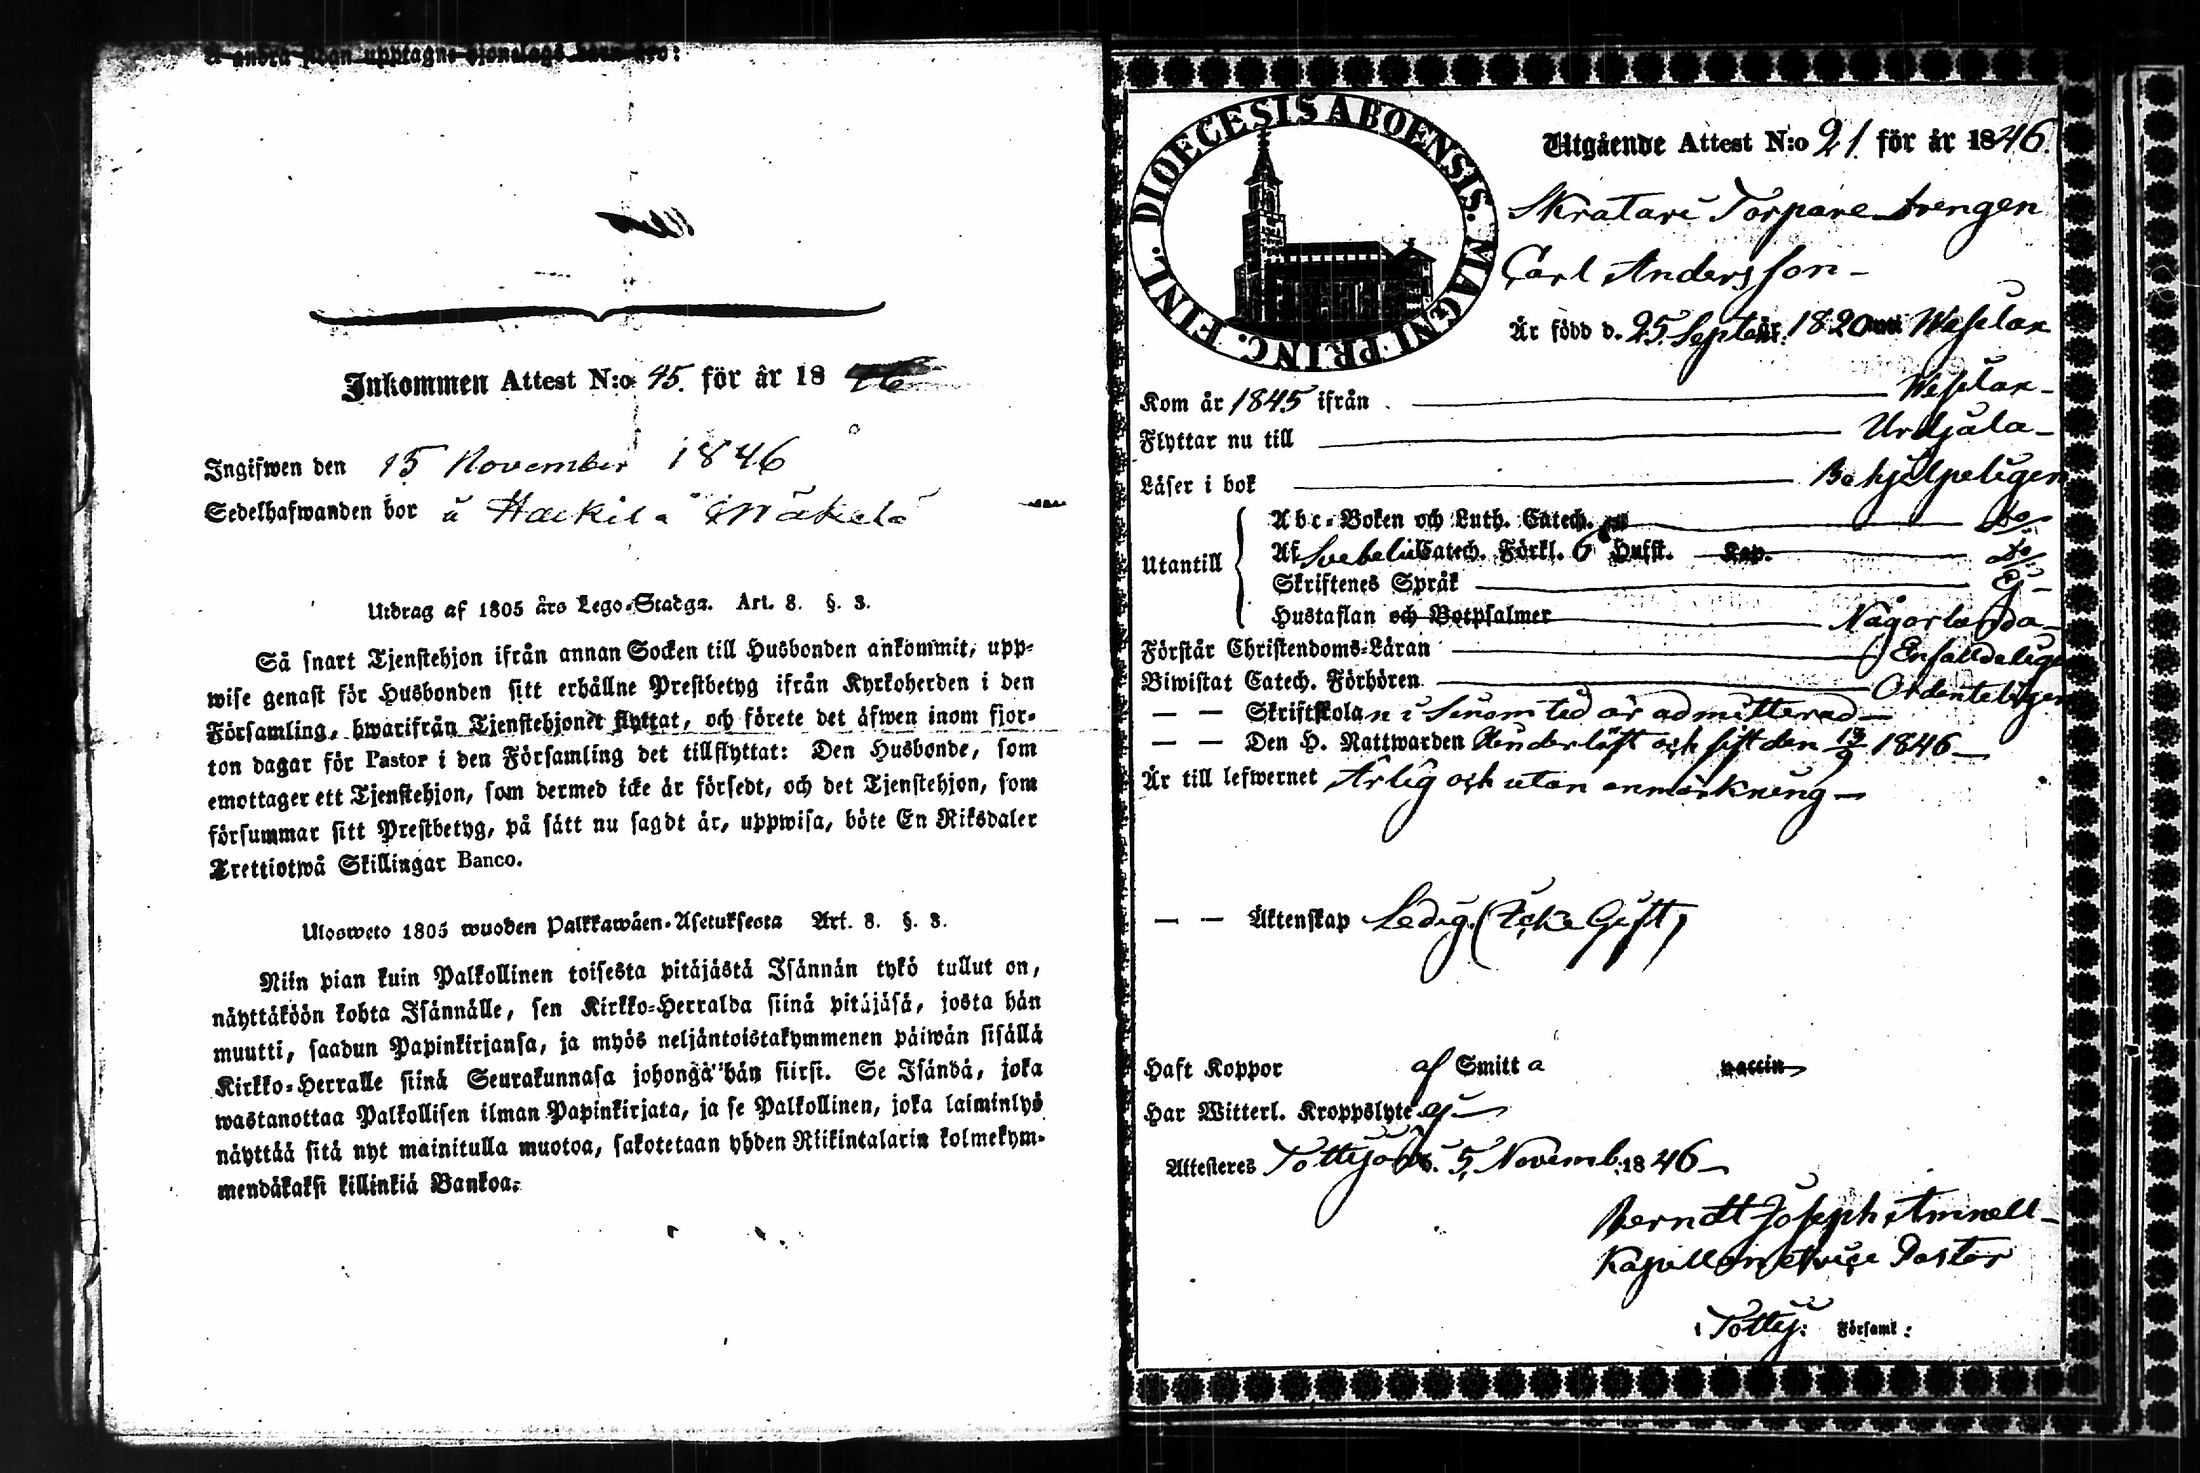 Å andra sidan upptagne
Inkommen Attest N:o 45. för år 18 46
Ingifwen den 15 November 1846
Sedelhafwanden bor å Häckilä Mäkelä
Utdrag af 1805 års Lego-Stadga. Art. 8. §. 3.
Så snart Tjenstehjon ifrån annan Socken till Husbonden ankommit, upp-
wise genast för Husbonden sitt erhållne Prestbetyg ifrån Kyrkoherden i den
Församling, hwarifrån Tjenstehjonet flyttat, och förete det äfwen inom fjor-
ton dagar för Pastor i den Församling det tillflyttat: Den Husbonde, som
emottager ett Tjenstehjon, som dermed icke är försedt, och det Tjenstehjon, som
försummar sitt Prestbetyg, på sätt nu sagdt är, uppwisa, böte En Riksdaler
Trettiotwå Skillingar Banco.
Ulosweto 1805 wuoden Palkkawäen-Asetuksesta Art. 8. §. 3.
Niin pian kuin Palkollinen toisesta pitäjästä Isännän tykö tullut on,
näyttäköön kohta Isännälle, sen Kirkko-Herralda siinä pitäjäsä, josta hän
muutti, saadun Papinkirjansa, ja myös neljäntoistakymmenen päiwän sisällä
Kirkko-Herralle siinä Seurakunnasa johonga hän siirsi. Se Isändä, joka
wastanottaa Palkollisen ilman Papinkirjata, ja se Palkollinen, joka laiminlyö
näyttää sitä nyt mainitulla muotoa, sakotetaan yhden Riikintalarin kolmekym-
mendäkaksi killinkiä Bankoa.
DIOECESIS ABOENSIS. MAGNI PRINC. FINL.
Utgående Attest N:o 21. för år 1846.
Skratari Torpare drengen
Carl Andersson
Är född d. 25. Sept. år 1820 uti Wesilax
Kom år 1845 ifrån Wesilax
Flyttar nu till Urdjala
Läser i bok Behjelpeligen
Utantill
Abc-Boken och Luth. Catech. do
Af Svebelii Catech. Förkl. 6 Hufst. Kap. do
Skriftenes Språk Ej
Hustaflan och Botpsalmer Någorlunda
Förstår Christendoms-Läran Enfaldeligen
Biwistat Catech. Förhören Ordenteligen
— — Skriftskolan i sinom tid är admitterad
— — Den H. Nattwarden Anderlöst och sist den 13/9 1846
Är till lefwernet Ärlig och utan anmärkning
— — Äktenskap Ledig. (Icke Gift)
Haft Koppor af Smitta vaccin
Har Witterl. Kroppslyte ej
Attesteres Tottijärvi d. 5. Novemb. 1846
Berndt Joseph Amnell
Kapellan et vice Pastor
i Tottij: Församl: